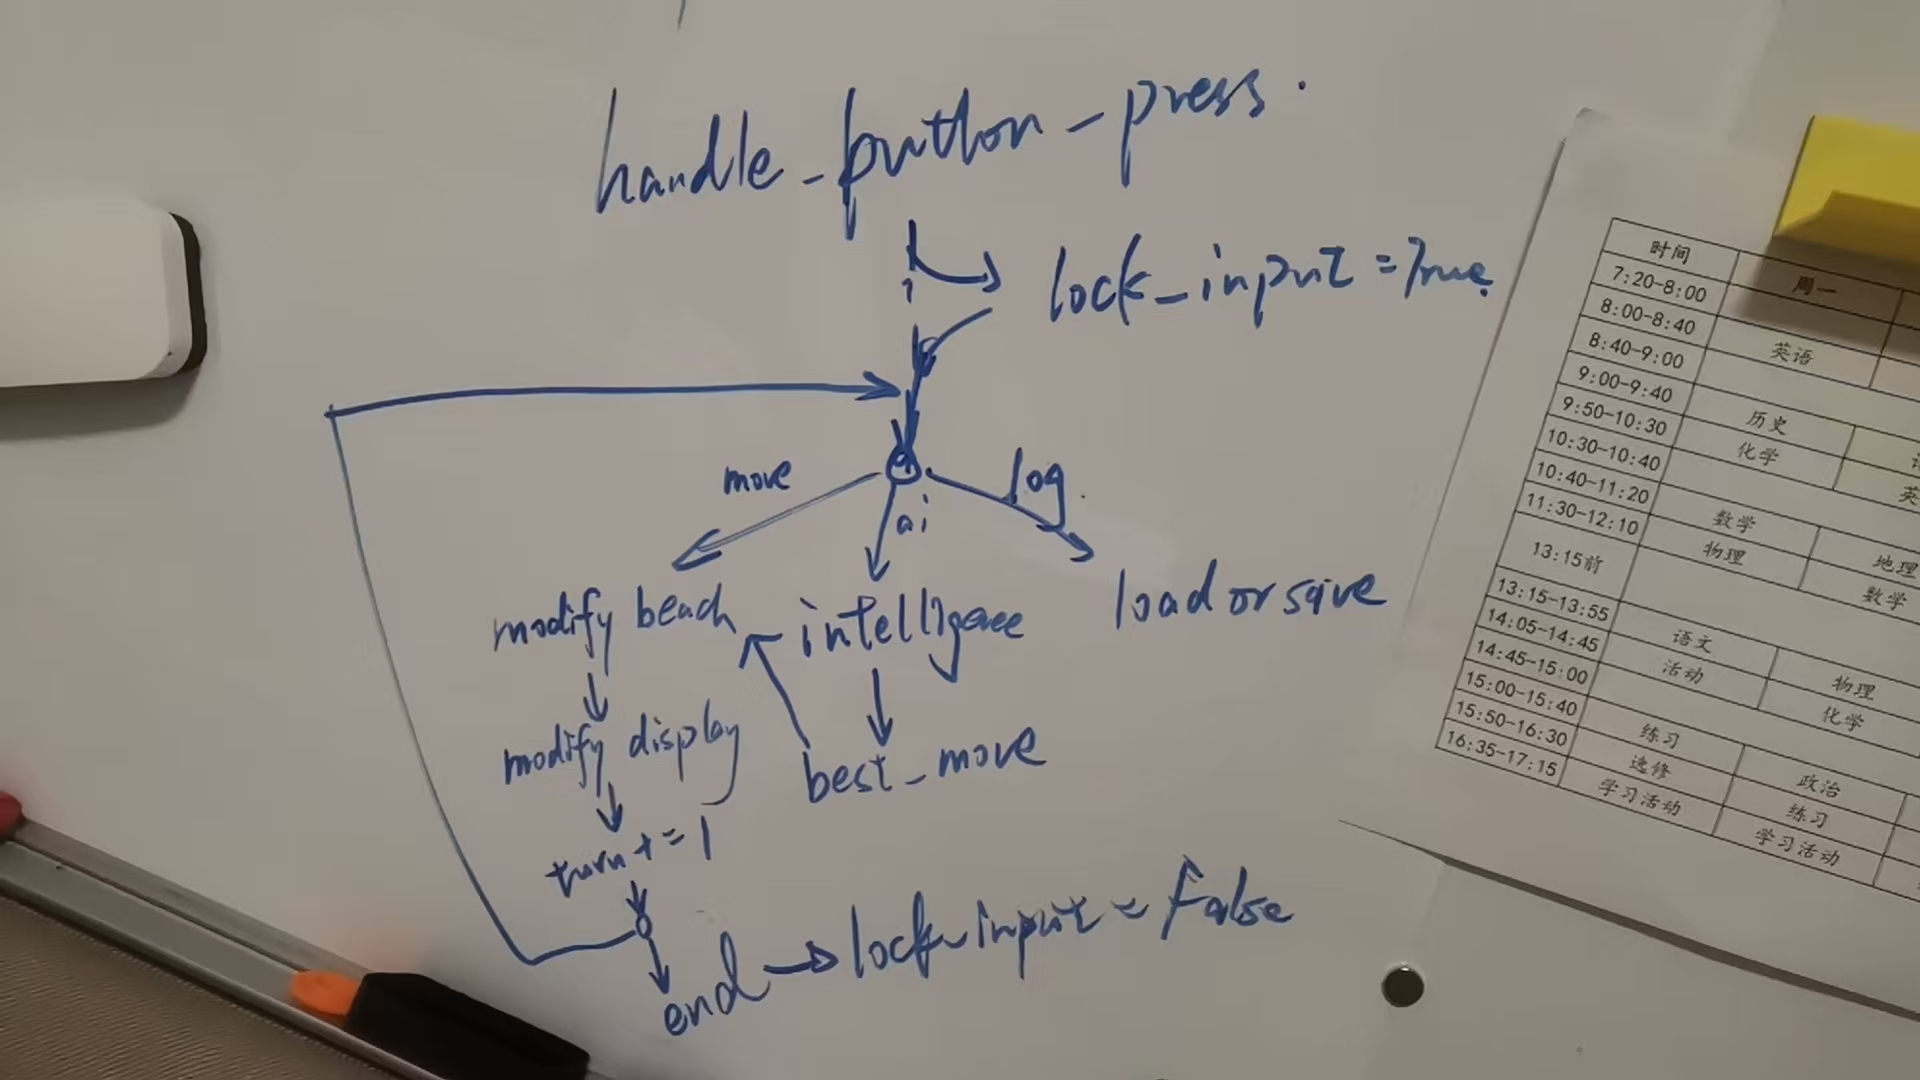 handle_button_press.
lock_input = True.
move
ai
log
modify beach
intelligence
load or save
modify display
best_move
turn += 1
end → lock_input = False
时间 周一
7:20-8:00
8:00-8:40 英语
8:40-9:00
9:00-9:40 历史
9:50-10:30 化学
10:30-10:40 英
10:40-11:20 数学 地理
11:30-12:10 物理 数学
13:15前
13:15-13:55 语文 物理
14:05-14:45 活动 化学
14:45-15:00
15:00-15:40 练习 政治
15:50-16:30 选修 练习
16:35-17:15 学习活动 学习活动